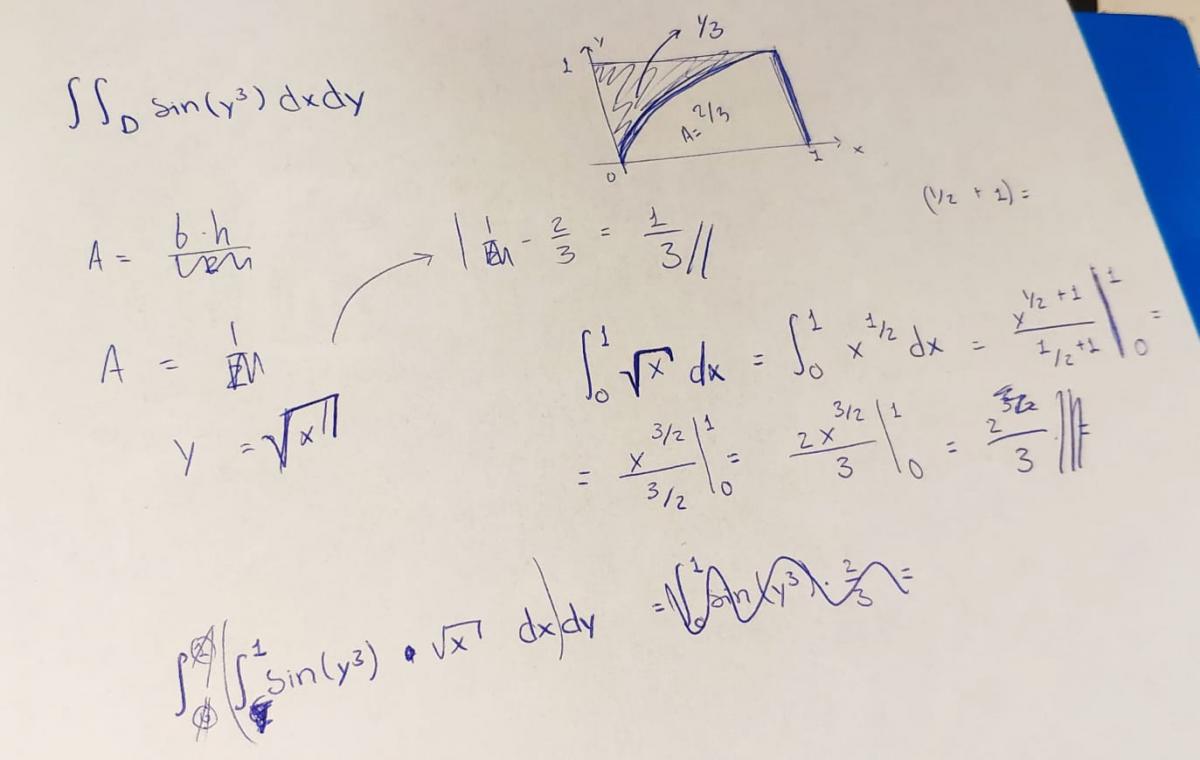 ∫∫_D sin(y³) dxdy
y
1/3
1
A= 2/3
0
1
x
(1/2 + 1) =
A = b·h
A = 1
| 1 - 2/3 = 1/3 //
y = √x
∫₀¹ √x dx = ∫₀¹ x^(1/2) dx = x^(1/2 +1) / (1/2 +1) |₀¹ =
= x^(3/2) / (3/2) |₀¹ = 2x^(3/2) / 3 |₀¹ = 2/3
∫ (∫ ¹ sin(y³) • √x dx) dy = ∫₀¹ sin(y³) · 2/3 =